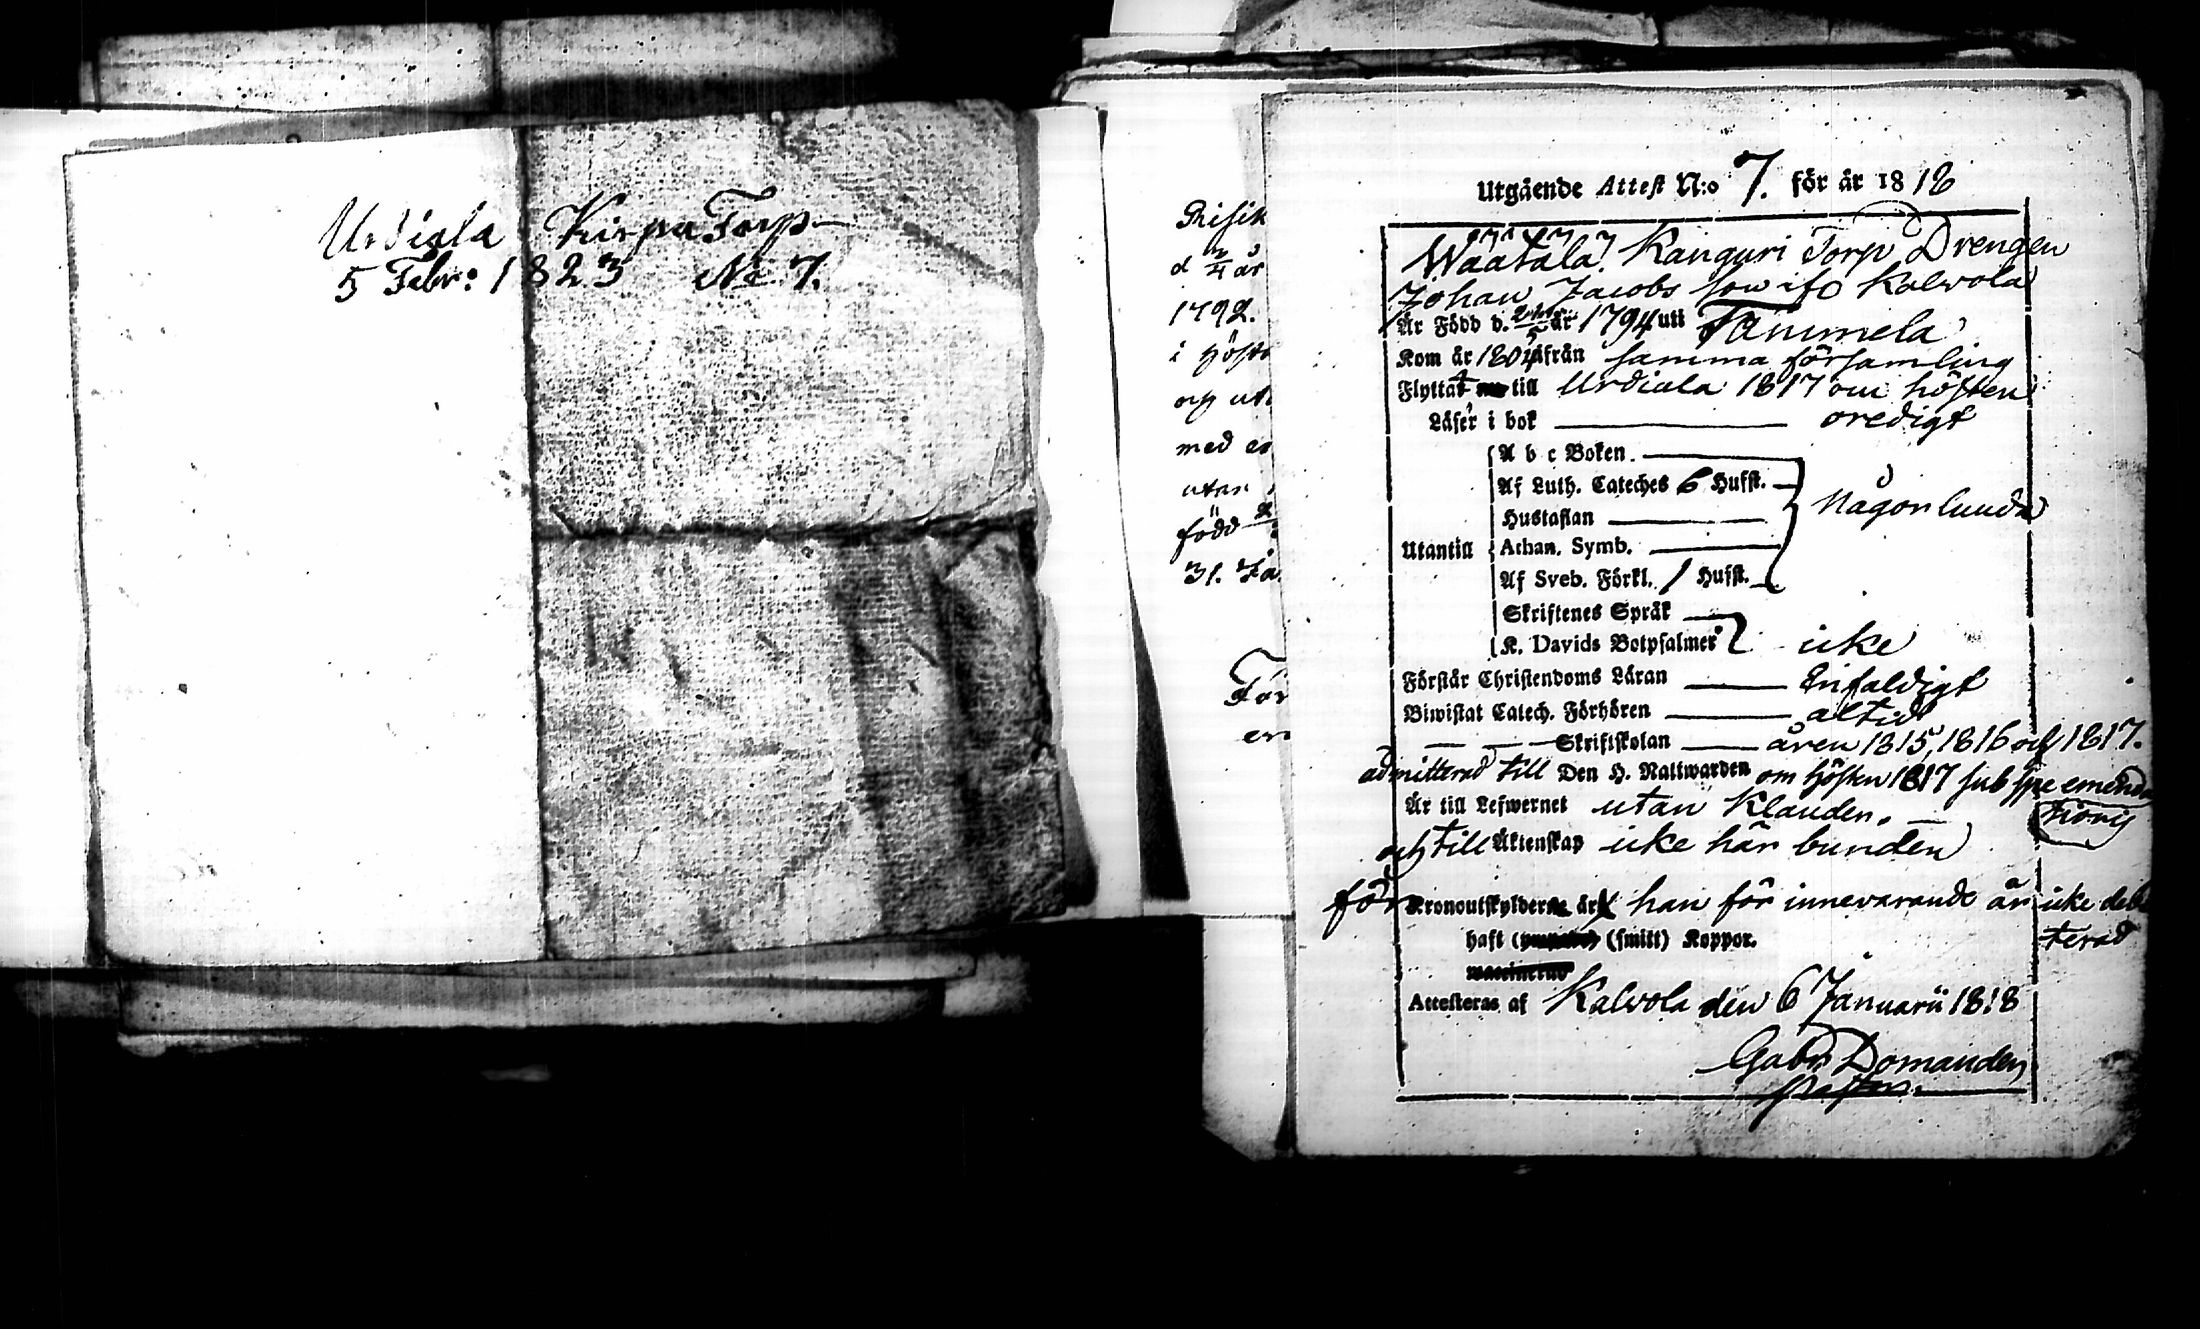 Urdiala Kirpu Torp
5 Febr: 1823 No 7.
Risik
1792.
i hösta
med en
utan
född
31.
För
Utgående Attest N:o 7. för år 1818
Waatala. Kanguri Torp Drengen
Johan Jacobs son ifr Kalvola
Är Född d. år 1794 uti Tammela
Kom år ifrån samma församling
Flyttat till Urdiala 1817 om hösten
Läser i bok oredigt
A b c Boken.
Af Luth. Cateches 6 Hufst.
Hustaflan
någon lunda
Utantill Athan. Symb.
Af Sveb. Förkl. 1 Hufst.
Skriftenes Språk
K. Davids Botpsalmer icke
Förstår Christendoms Läran Enfaldigt
Biwistat Catech. Förhören altid
Skriftskolan åren 1815, 1816 och 1817.
admitterad till Den H. Nattwarden om hösten 1817 sub spe emenda
tionis
Är till Lefwernet utan klander.
och till Äktenskap icke här bunden
för Kronoutskylderne är han för innevarande år icke debi
terad
haft (smitt) Koppor.
Attesteras af Kalvola den 6 Januarii 1818
Gabr. Domander
Pastor.